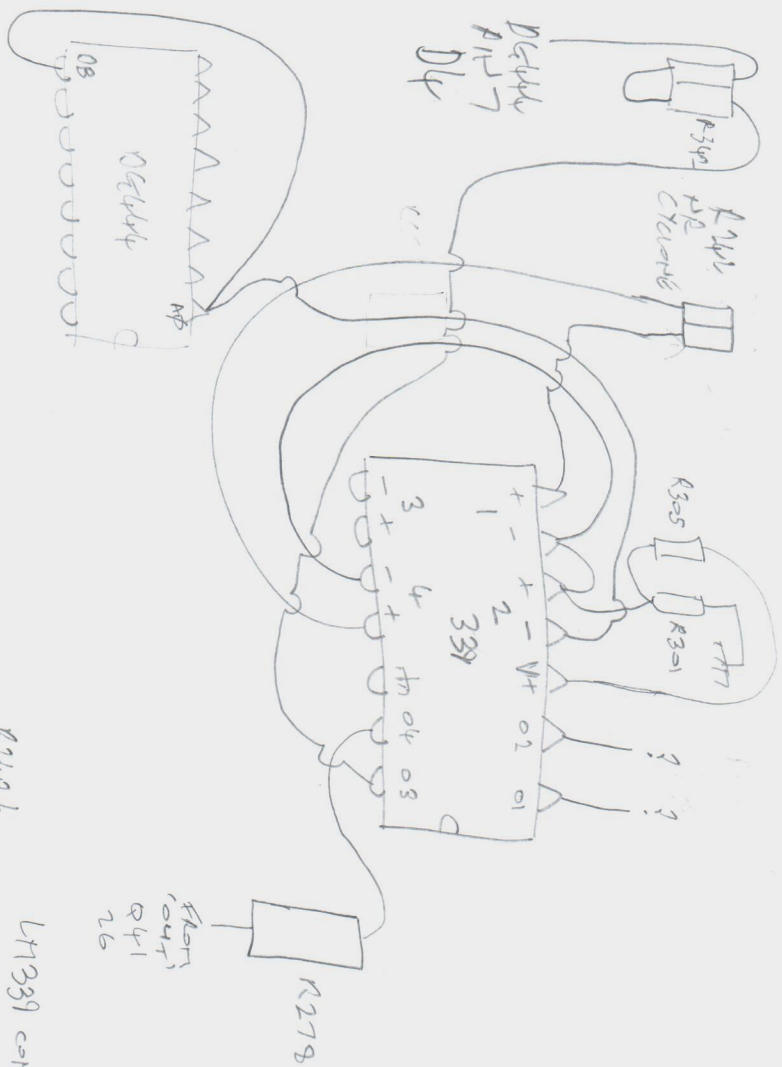 DG444
PIN 7
D4
R342
R242
NR
CYCLONE
DB
DG444
AD
R305
R301
+
-
+
-
V+
02
01
?
?
1
2
339
3
4
-
+
-
+
04
03
FROM
'OUT'
Q41
26
R278
LM339